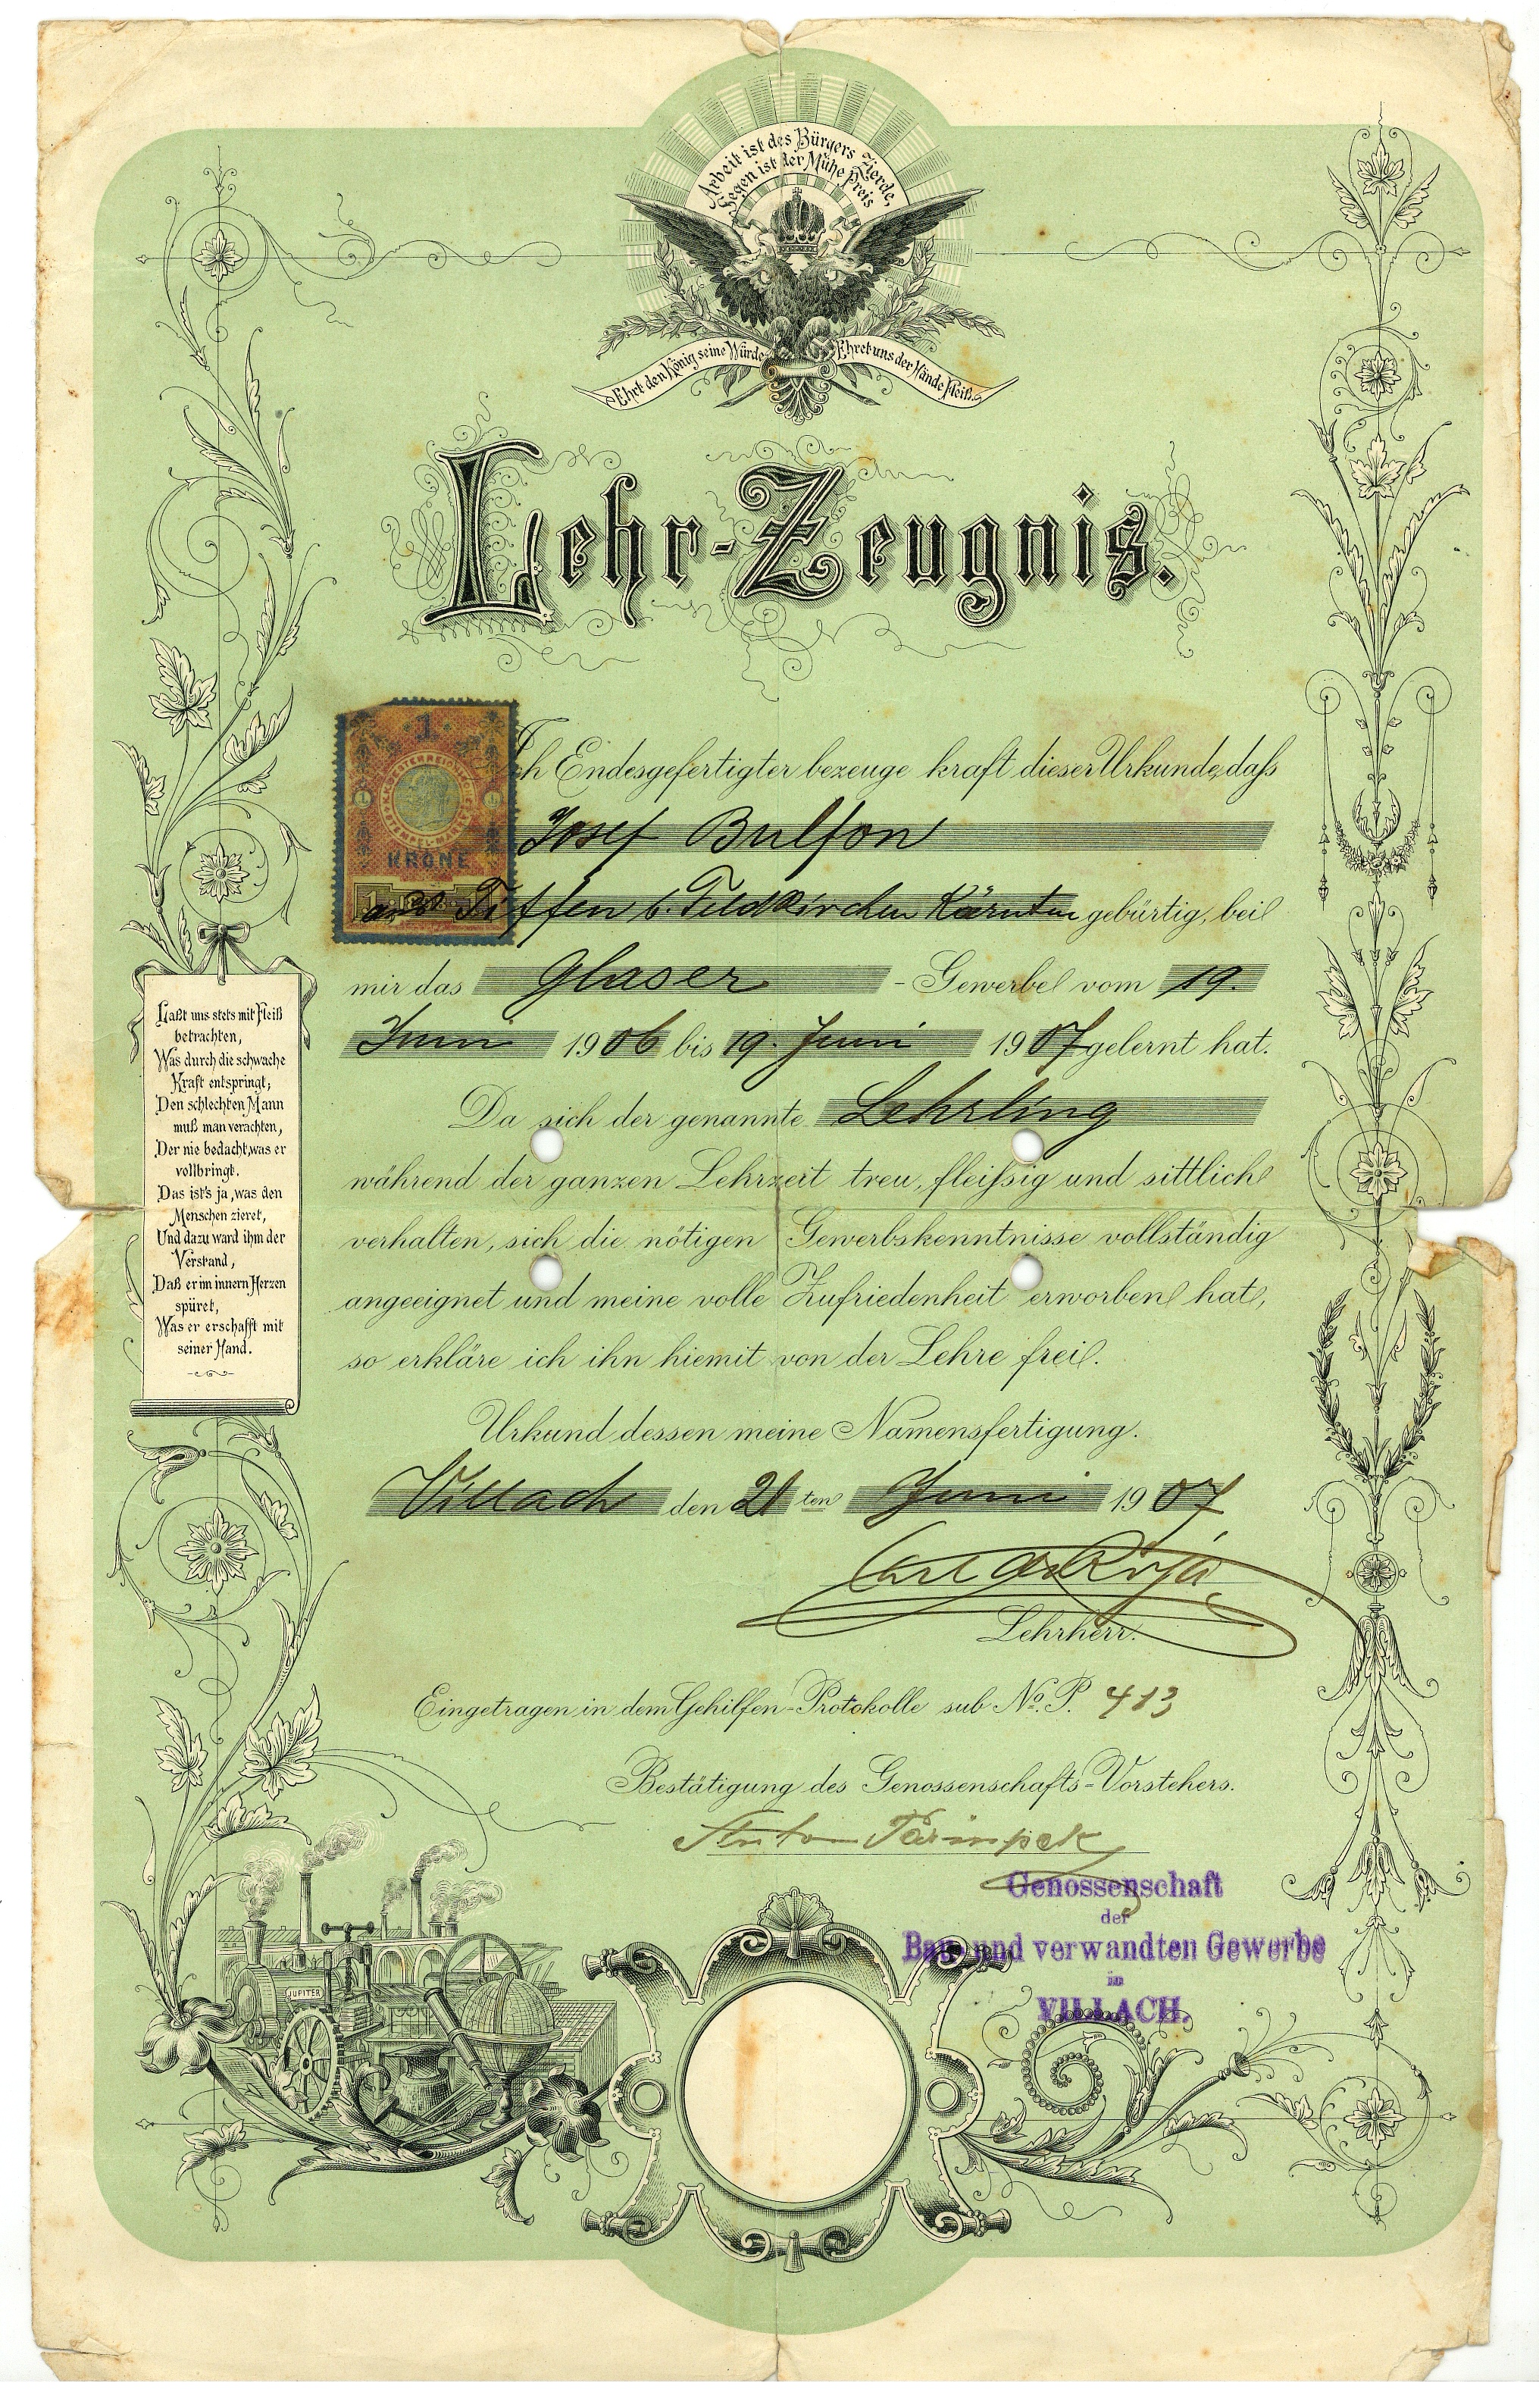 Arbeit ist des Bürgers Zierde,
Segen ist der Mühe Preis
Ehrt den König seine Würde
Ehret uns der Hände Fleiß.
Lehr-Zeugnis.
1
KRONE
Ich Endesgefertigter bezeuge kraft dieser Urkunde, daſs
Josef Bulfon
aus Tiffen b. Feldkirchen Kärnten gebürtig, bei
mir das Glaser - Gewerbe vom 19.
Juni 1906 bis 19. Juni 1907 gelernt hat.
Da sich der genannte Lehrling
während der ganzen Lehrzeit treu, fleiſsig und sittlich
verhalten, sich die nötigen Gewerbskenntnisse vollständig
angeeignet und meine volle Zufriedenheit erworben hat,
so erkläre ich ihn hiemit von der Lehre frei.
Urkund dessen meine Namensfertigung.
Villach den 21 ten Juni 1907
Lehrherr.
Eingetragen in dem Gehilfen-Protokolle sub No. P. 413
Bestätigung des Genossenschafts-Vorstehers.
Anton
Genossenschaft
der
Bau- und verwandten Gewerbe
in
VILLACH.
Laßt uns stets mit Fleiß
betrachten,
Was durch die schwache
Kraft entspringt;
Den schlechten Mann
muß man verachten,
Der nie bedacht, was er
vollbringt.
Das ist's ja, was den
Menschen zieret,
Und dazu ward ihm der
Verstand,
Daß er im innern Herzen
spüret,
Was er erschafft mit
seiner Hand.
JUPITER